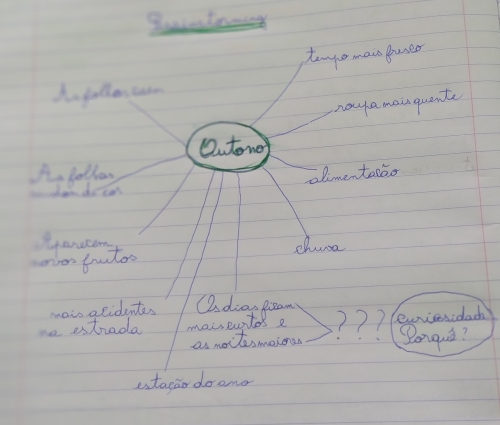 Brainstorming
tempo mais fresco
As folhas caem
roupa mais quente
Outono
As folhas
mudam de cor
alimentação
Aparecem
novos frutos
chuva
mais acidentes
na estrada
Os dias ficam
mais curtos e
as noites maiores
? ? ?
curiosidade
Porquê?
estação do ano